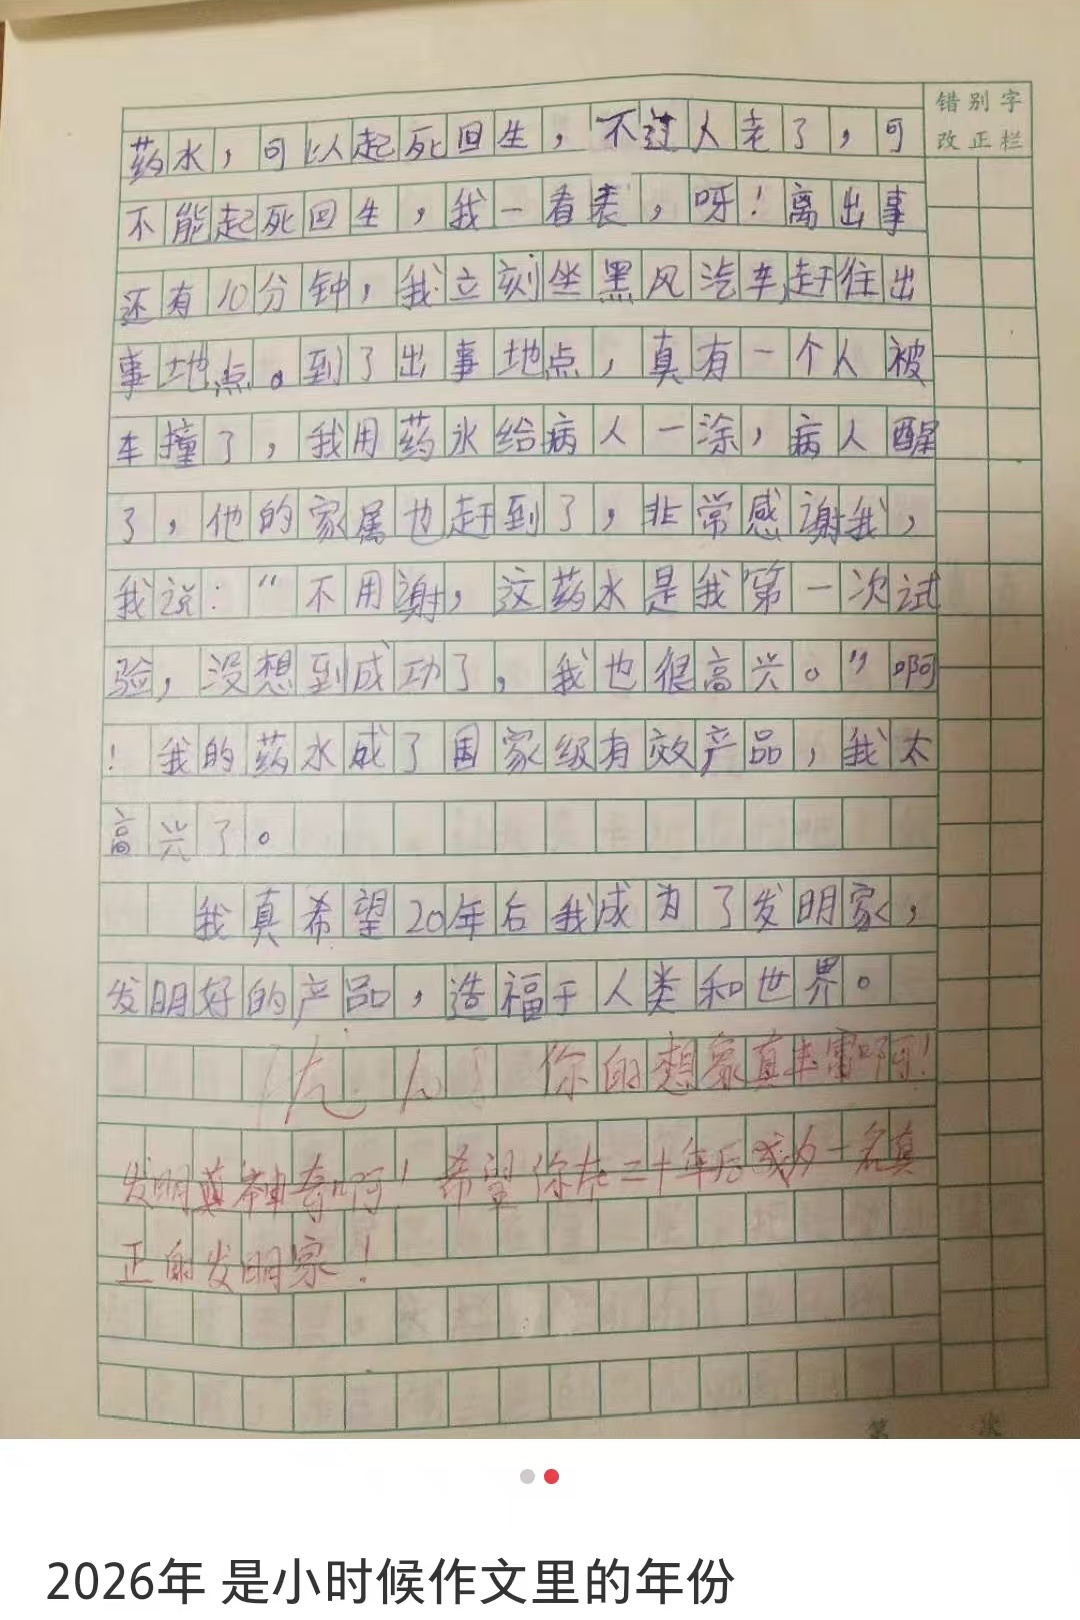 错别字
改正栏
药水，可以起死回生，不过人老了，可
不能起死回生，我一看表，呀！离出事
还有10分钟，我立刻坐黑风汽车赶往出
事地点。到了出事地点，真有一个人被
车撞了，我用药水给病人一涂，病人醒
了，他的家属也赶到了，非常感谢我，
我说：“不用谢，这药水是我第一次试
验，没想到成功了，我也很高兴。”啊
！我的药水成了国家级有效产品，我太
高兴了。
我真希望20年后我成为了发明家，
发明好的产品，造福于人类和世界。
你的想象真丰富啊！
发明真神奇啊！希望你在二十年后成为一名真
正的发明家！
第 次
2026年 是小时候作文里的年份